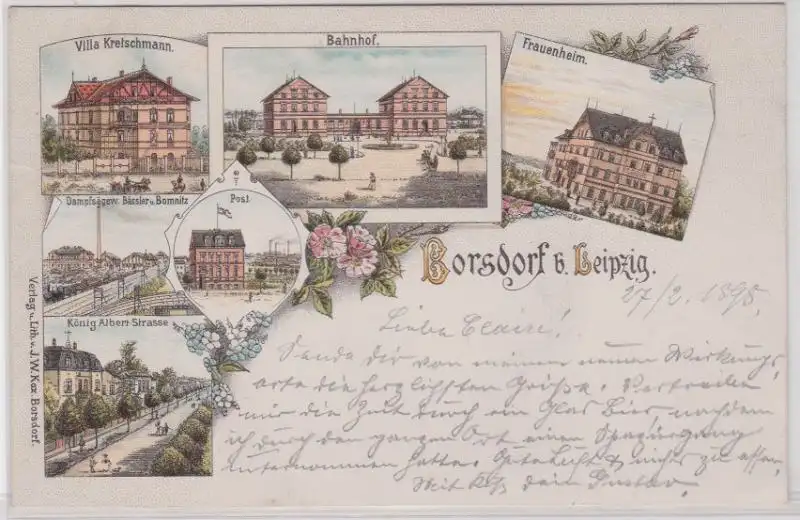 Villa Kretschmann.
Bahnhof.
Frauenheim.
Dampfsägew. Bässler u. Bomnitz
Post
König Albert-Strasse
Verlag u. Lith. v. J. W. Kox Borsdorf.
Borsdorf b. Leipzig.
27/2. 1898.
Liebe Claire!
Sende dir von meinem neuen Wirkungs
orte die herzlichsten Grüße. Vertreibe
mir die Zeit durch ein Glas Bier, nachdem
ich durch den ganzen Ort einen Spaziergang
unternommen hatte. Gute Luft & nichts zu essen
Mit dein Gustav.